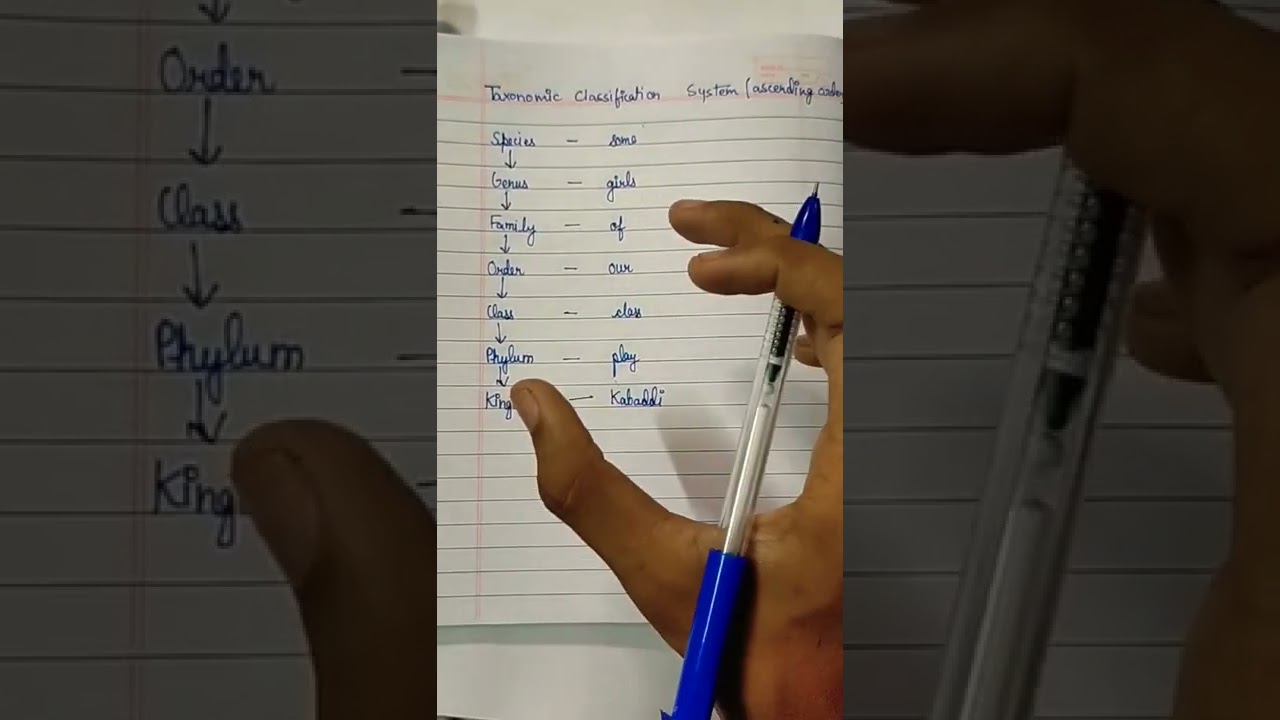 Taxonomic Classification System (ascending order
Species - some
Genus - girls
Family - of
Order - our
Class - class
Phylum - play
King - Kabaddi